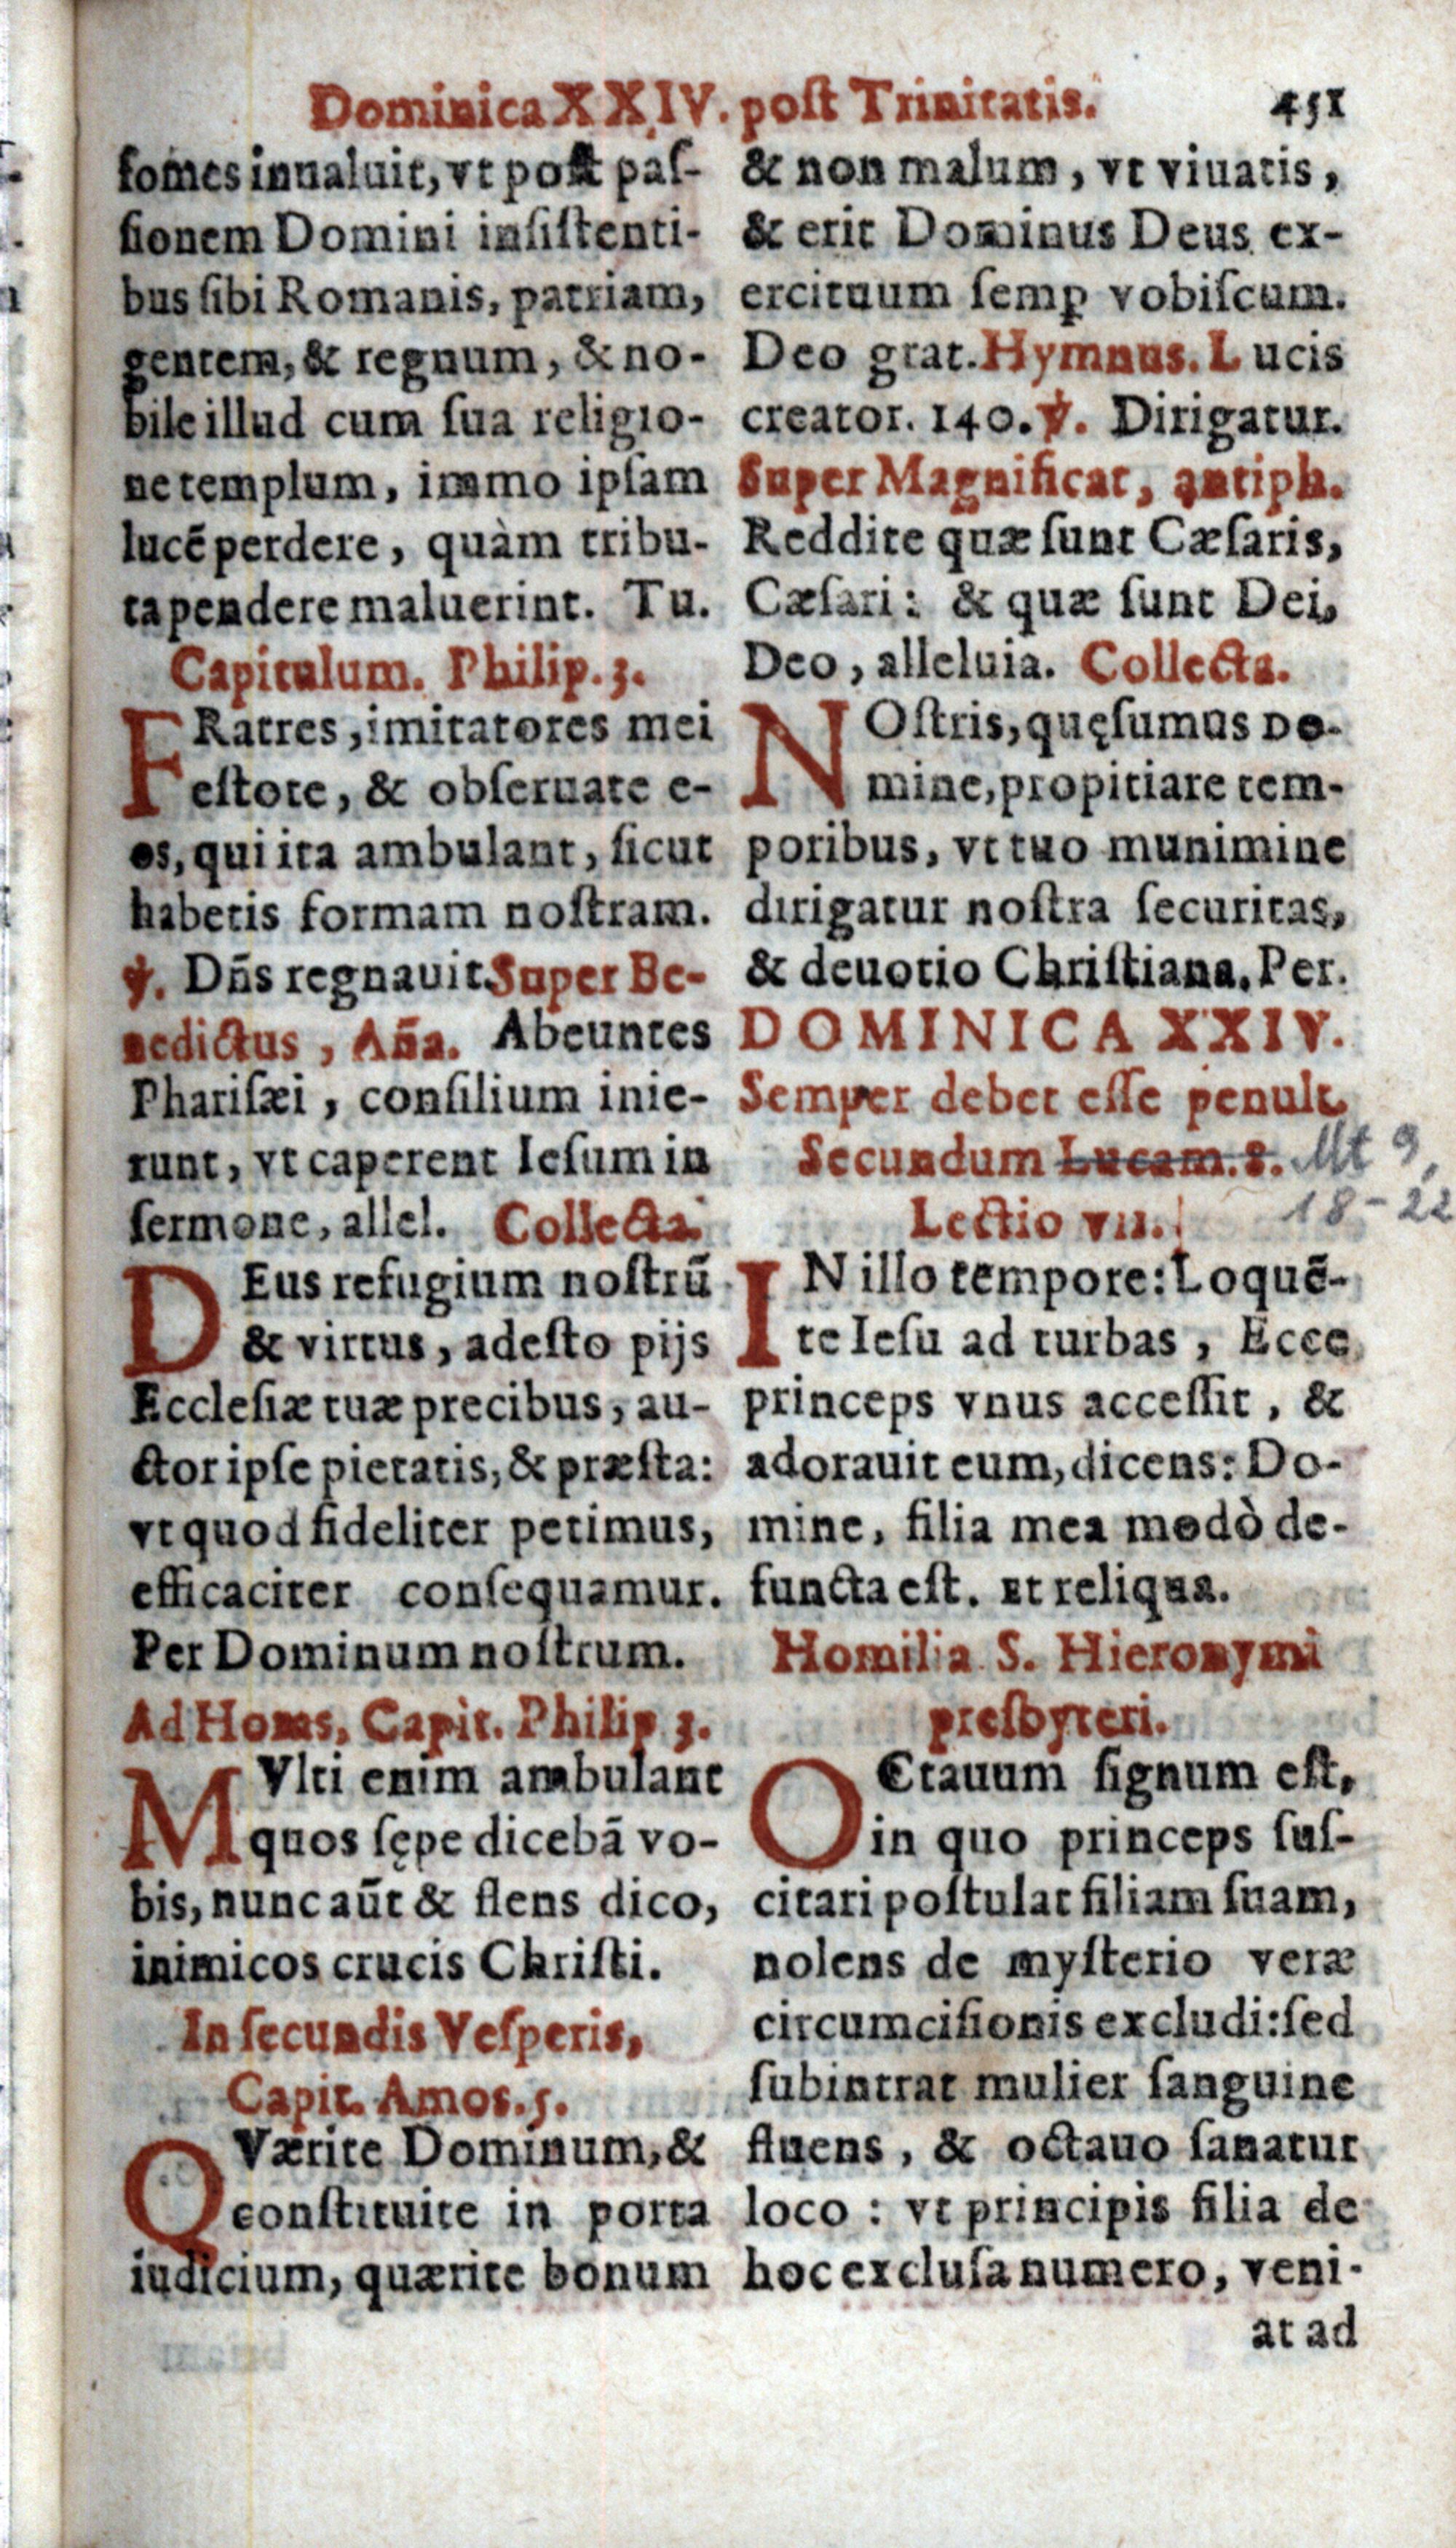 Dominica XXIV. poſt Trinitatis. 451
fomes inualuit, vt poſt paſ-
ſionem Domini inſiſtenti-
bus ſibi Romanis, patriam,
gentem, & regnum, & no-
bile illud cum ſua religio-
ne templum, immo ipſam
lucē perdere, quàm tribu-
ta pendere maluerint. Tu.
Capitulum. Philip. 3.
FRatres, imitatores mei
eſtote, & obſeruate e-
os, qui ita ambulant, ſicut
habetis formam noſtram.
℣. Dñs regnauit. Super Be-
nedictus, Aña. Abeuntes
Phariſæi, conſilium inie-
runt, vt caperent Ieſum in
ſermone, allel. Collecta.
DEus refugium noſtrū
& virtus, adeſto pijs
Eccleſiæ tuæ precibus, au-
ctor ipſe pietatis, & præſta:
vt quod fideliter petimus,
efficaciter conſequamur.
Per Dominum noſtrum.
Ad Horas, Capit. Philip 3.
MVlti enim ambulant
quos ſępe dicebā vo-
bis, nunc aūt & flens dico,
inimicos crucis Chriſti.
In ſecundis Veſperis,
Capit. Amos. 5.
QVærite Dominum, &
conſtituite in porta
iudicium, quærite bonum
& non malum, vt viuatis,
& erit Dominus Deus ex-
ercituum ſemꝑ vobiſcum.
Deo grat. Hymnus. Lucis
creator. 140. ℣. Dirigatur.
Super Magnificat, antiph.
Reddite quæ ſunt Cæſaris,
Cæſari: & quæ ſunt Dei,
Deo, alleluia. Collecta.
NOſtris, quęſumus DO-
mine, propitiare tem-
poribus, vt tuo munimine
dirigatur noſtra ſecuritas,
& deuotio Chriſtiana. Per.
DOMINICA XXIV.
Semper debet eſſe penult.
Secundum Lucam. 8. Mt 9,
18-22
Lectio vii.
IN illo tempore: Loquē-
te Ieſu ad turbas, Ecce
princeps vnus acceſſit, &
adorauit eum, dicens: Do-
mine, filia mea modò de-
functa eſt. Et reliqua.
Homilia S. Hieronymi
preſbyteri.
OCtauum ſignum eſt,
in quo princeps ſuſ-
citari poſtulat filiam ſuam,
nolens de myſterio veræ
circumciſionis excludi: ſed
ſubintrat mulier ſanguine
fluens, & octauo ſanatur
loco: vt principis filia de
hoc excluſa numero, veni-
at ad